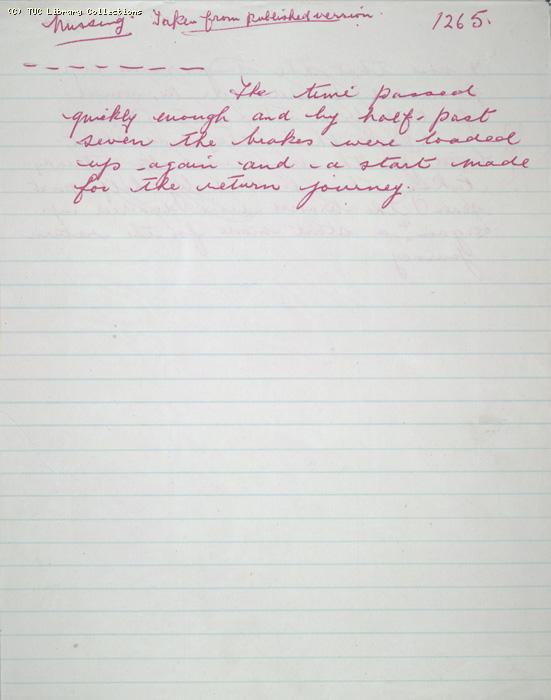 (C) TUC Library Collections
Missing. Taken from published version. 1265.
The time passed
quickly enough and by half-past
seven the brakes were loaded
up again and a start made
for the return journey.